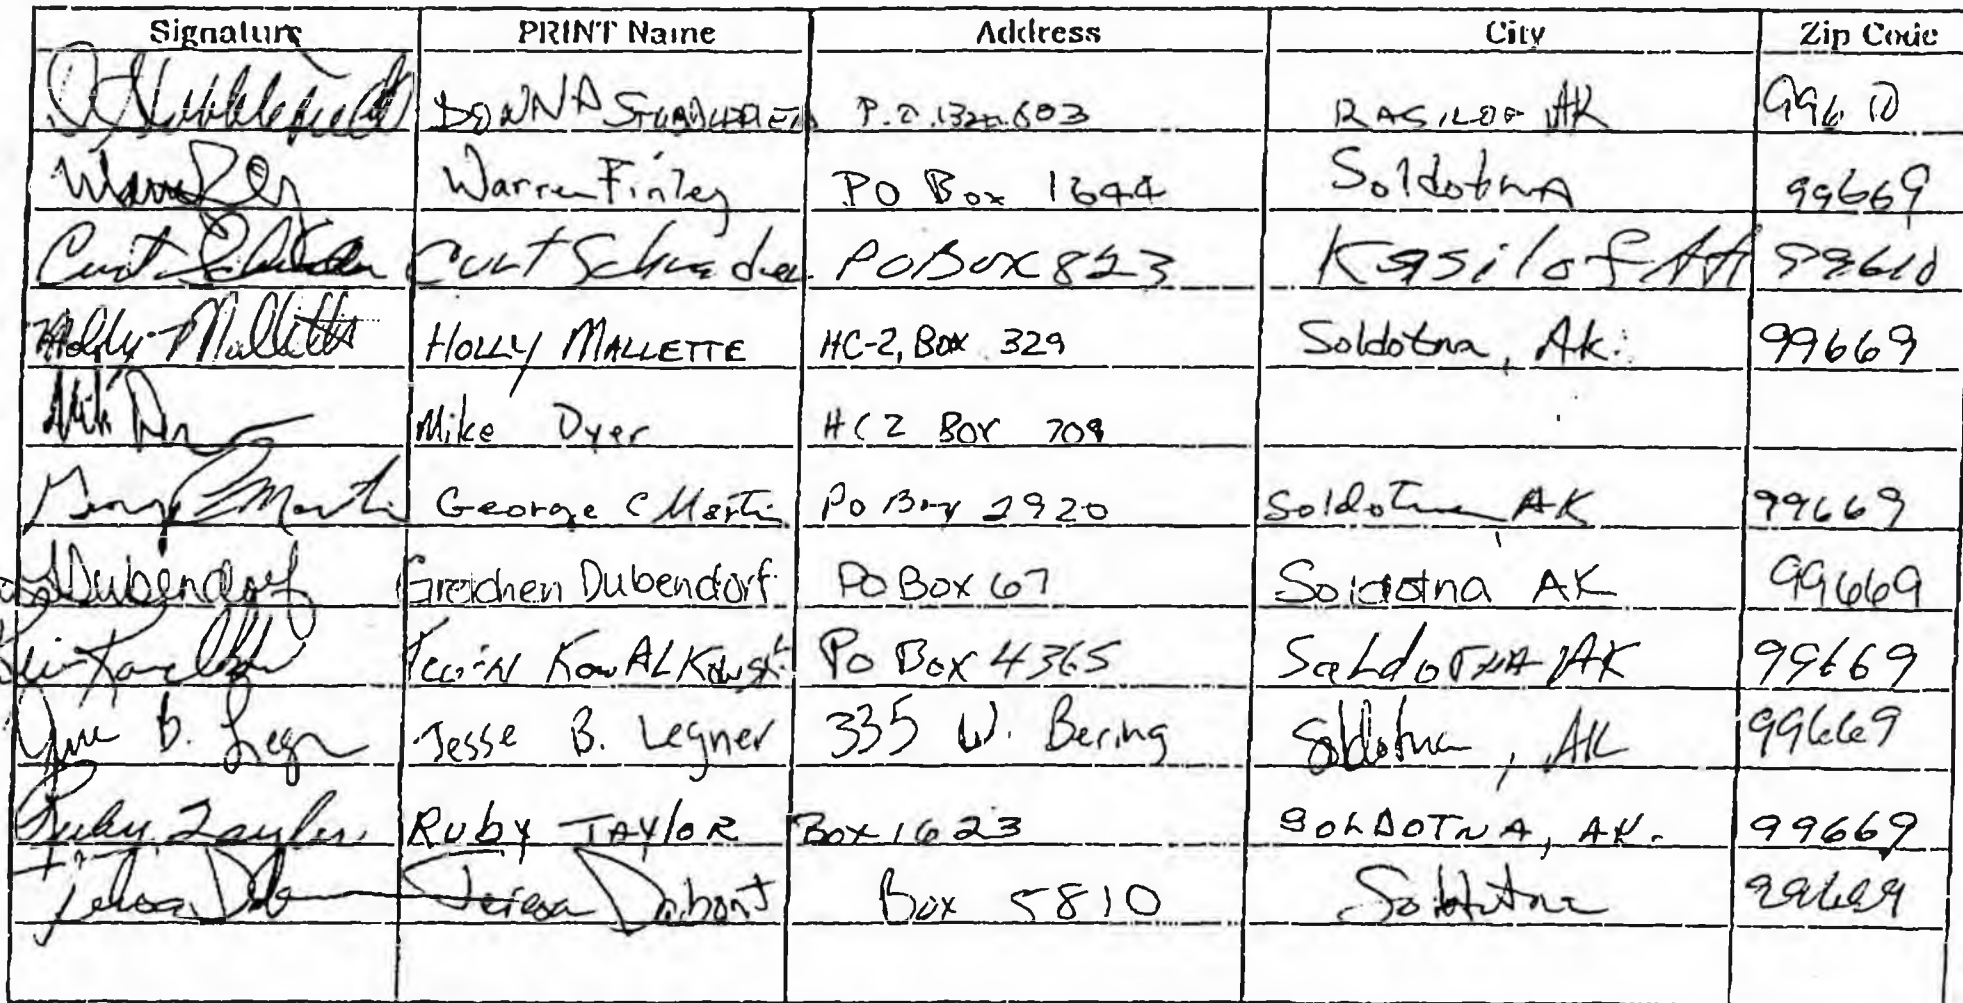 Signature PRINT Name Address City Zip Code
D Stubblefield DONNA STUBBLEFIELD P.O. Box 603 KASILOF AK 99610
Warren Finley PO Box 1644 Soldotna 99669
Curt Schrader Curt Schrader PO Box 823 Kasilof AK 99610
Holly Mallette HOLLY MALLETTE HC-2, BOX 329 Soldotna, Ak. 99669
Mike Dyer HC2 BOX 709
George C Martin George C Martin Po Box 2920 Soldotna AK 99669
Dubendorf Gretchen Dubendorf PO Box 67 Soldotna AK 99669
KowALKowski Po Box 4365 SoLdoTNA AK 99669
Jesse B. Legner 335 W. Bering Soldotna, AK 99669
Ruby Taylor Ruby TAYloR Box 1623 SOLDOTNA, AK. 99669
Teresa Box 5810 Soldotna 99669